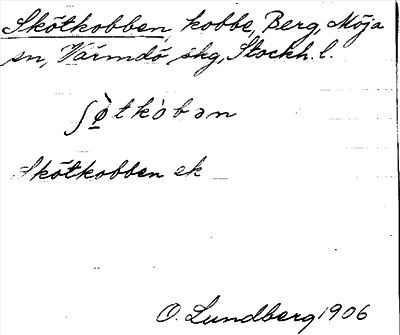 Skötkobben, kobbe, Berg, Möja
sn, Värmdö skg, Stockh. l.
ʃø̀tkòbən
Skötkobben ek
O. Lundberg 1906